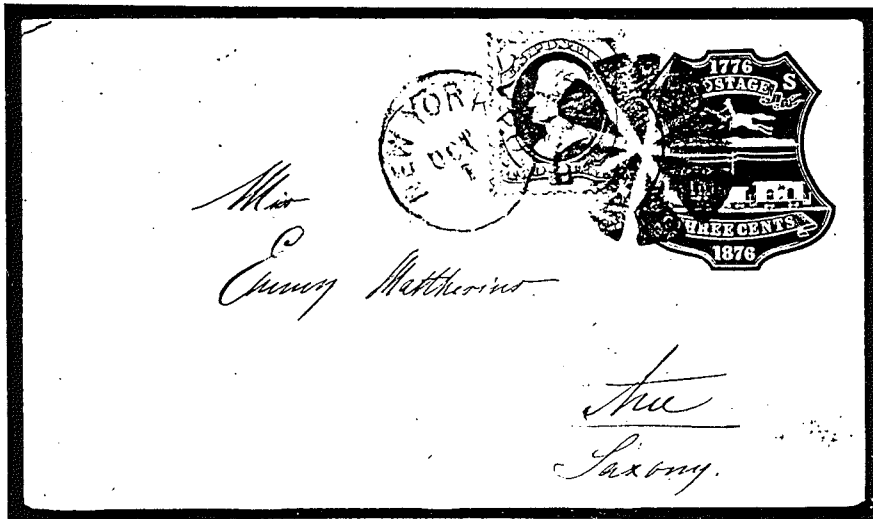 NEW YORK
OCT
1776
POSTAGE
U S
THREE CENTS
1876
Miss
Emmy Matthesius
Aue
Saxony.